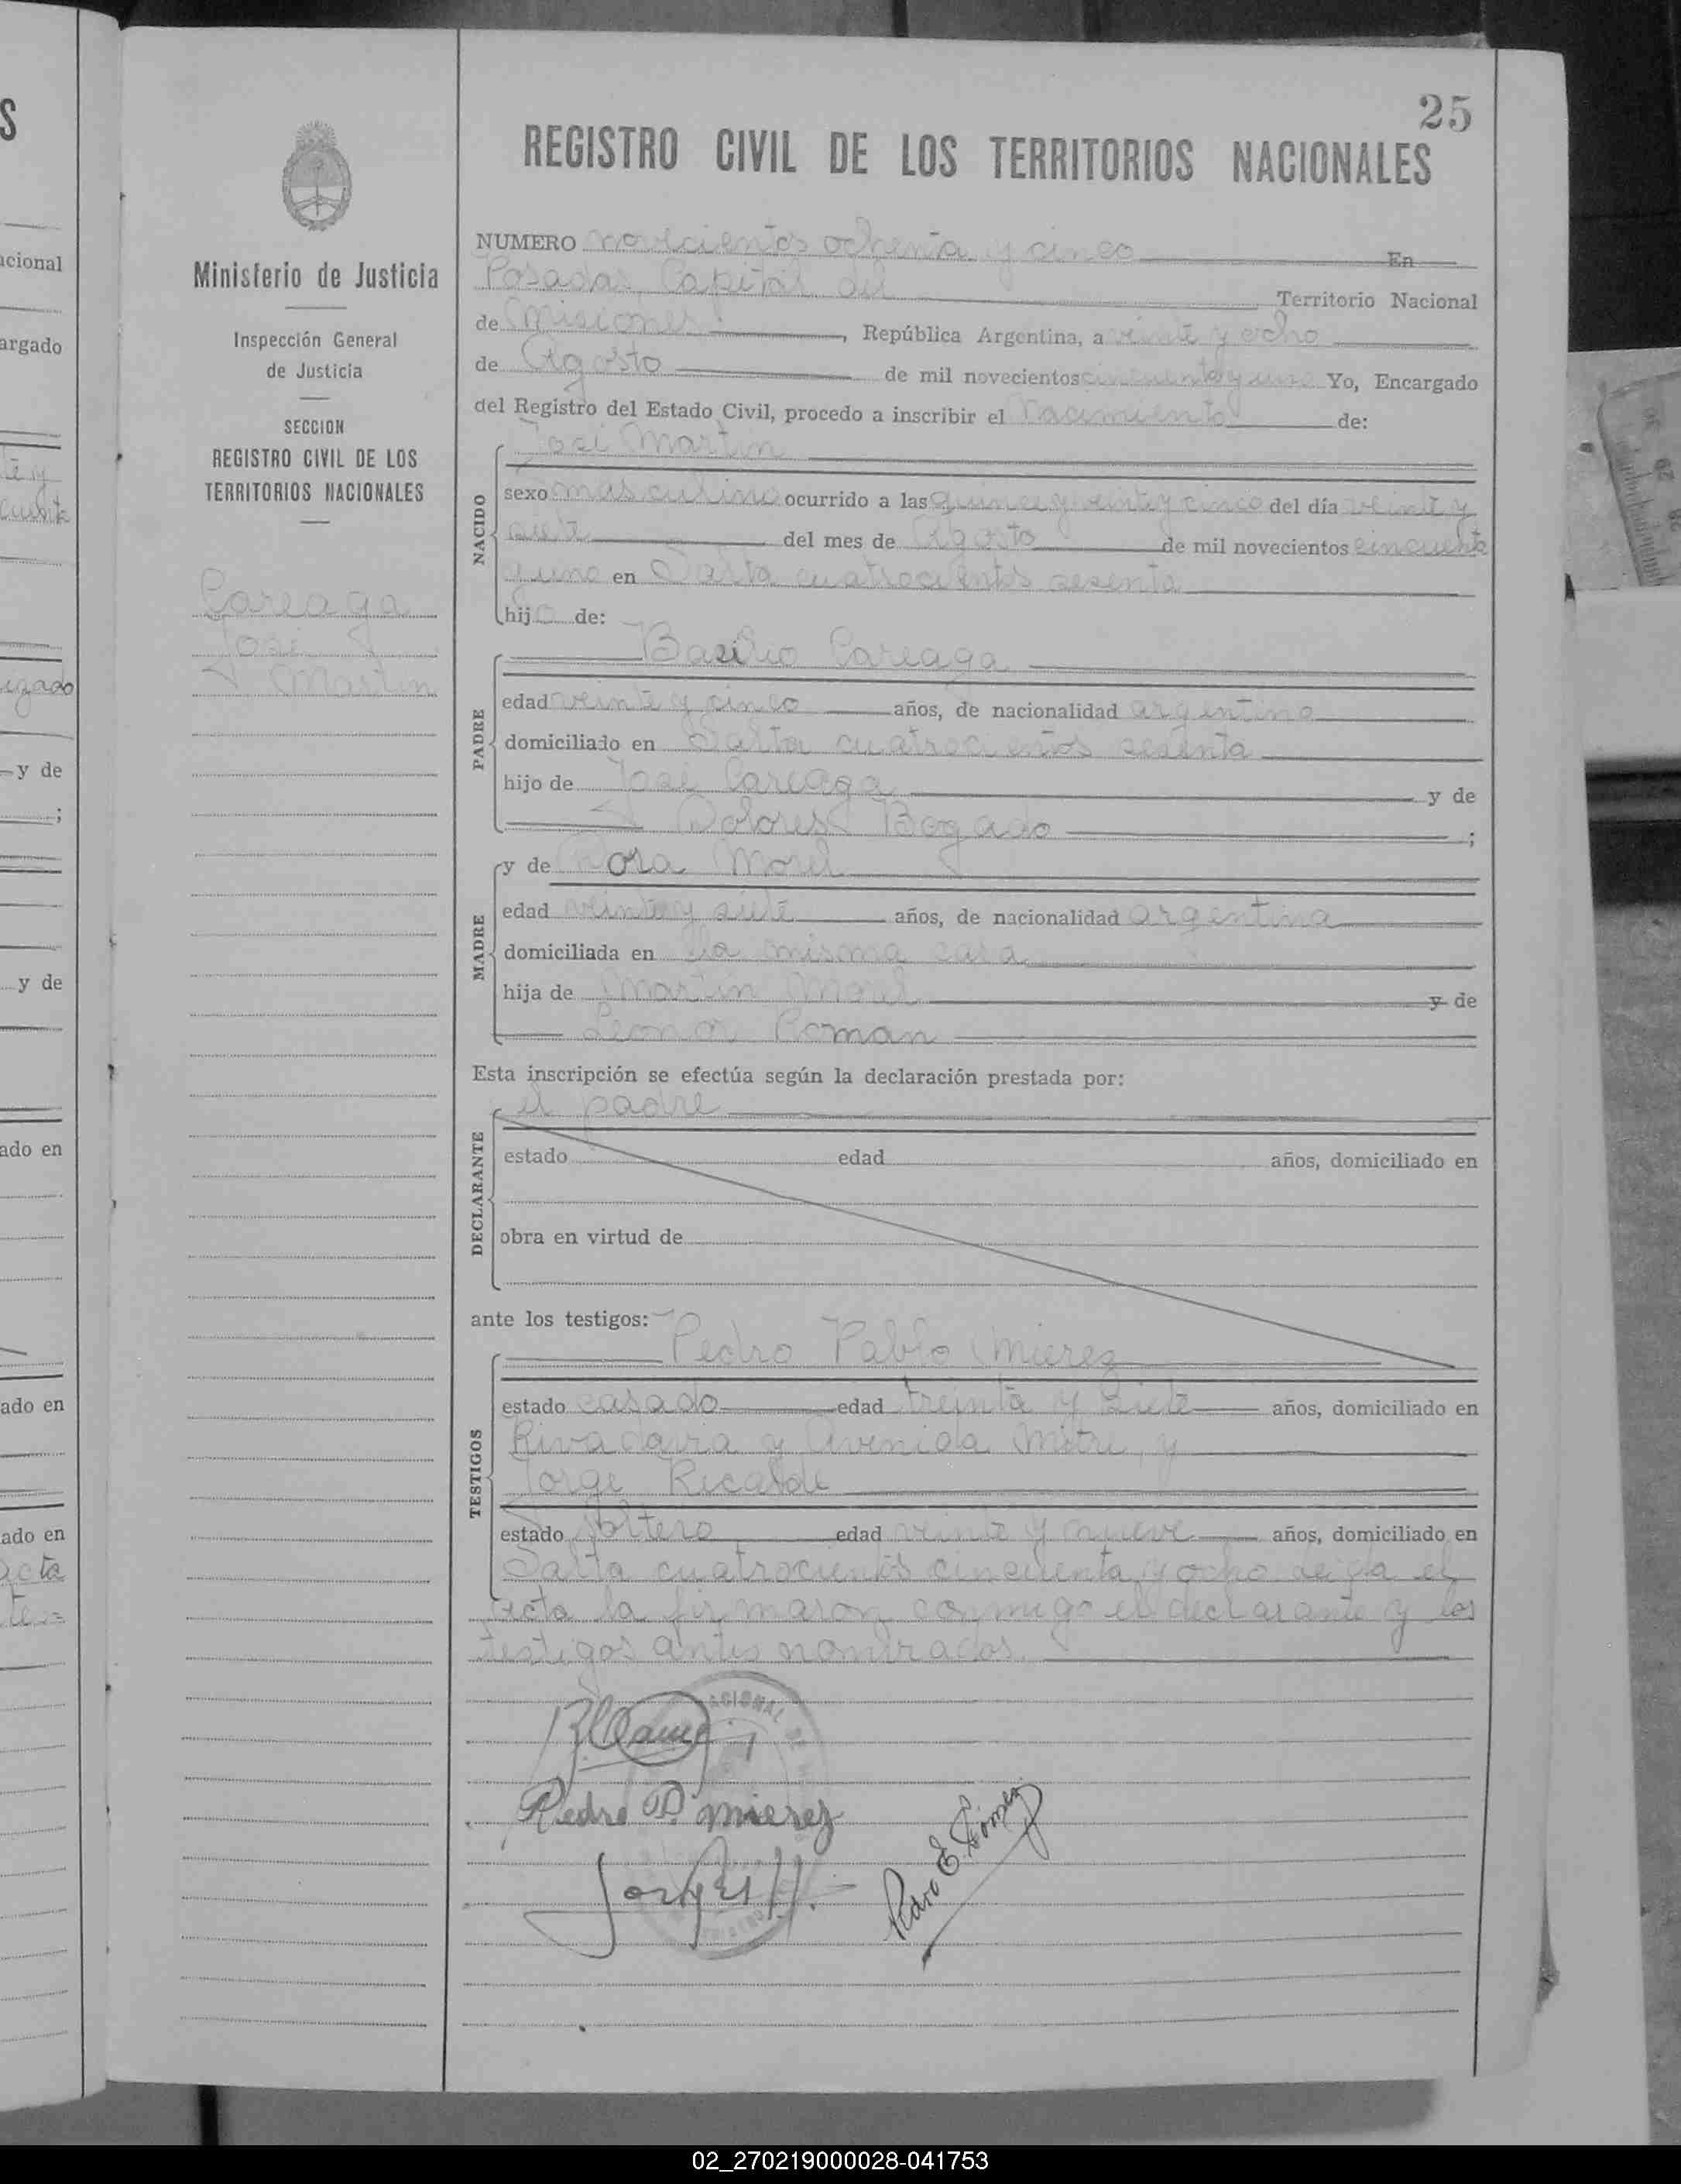 S
acional
argado
te y
cuenta
igado
y de
;
y de
ado en
ado en
ado en
acta
Ministerio de Justicia
Inspección General
de Justicia
SECCION
REGISTRO CIVIL DE LOS
TERRITORIOS NACIONALES
Careaga
José
Martin
25
REGISTRO CIVIL DE LOS TERRITORIOS NACIONALES
NUMERO novecientos ochenta y cinco En
Posadas, Capital del Territorio Nacional
de Misiones, República Argentina, a veinte y ocho
de Agosto de mil novecientos cincuenta y uno Yo, Encargado
del Registro del Estado Civil, procedo a inscribir el Nacimiento de:
José Martin
NACIDO
sexo masculino ocurrido a las quince y veinte y cinco del día veinte y
siete del mes de Agosto de mil novecientos cincuenta
y uno en Salta cuatrocientos sesenta
hijo de:
Basilio Careaga
PADRE
edad veinte y cinco años, de nacionalidad argentino
domiciliado en Salta cuatrocientos sesenta
hijo de José Careaga y de
Dolores Bogado ;
y de Dora Morel
MADRE
edad veinte y siete años, de nacionalidad argentina
domiciliada en la misma casa
hija de Martin Morel y de
Leonor Roman
Esta inscripción se efectúa según la declaración prestada por:
el padre
DECLARANTE
estado edad años, domiciliado en
obra en virtud de
ante los testigos:
Pedro Pablo Mierez
TESTIGOS
estado casado edad treinta y siete años, domiciliado en
Rivadavia y Avenida Mitre, y
Jorge Ricalde
estado soltero edad veinte y nueve años, domiciliado en
Salta cuatrocientos cincuenta y ocho leida el
acta la firmaron conmigo el declarante y los
testigos antes nombrados.
ACIONAL
Pedro P. Mierez
Pedro E. Gómez
02_270219000028-041753